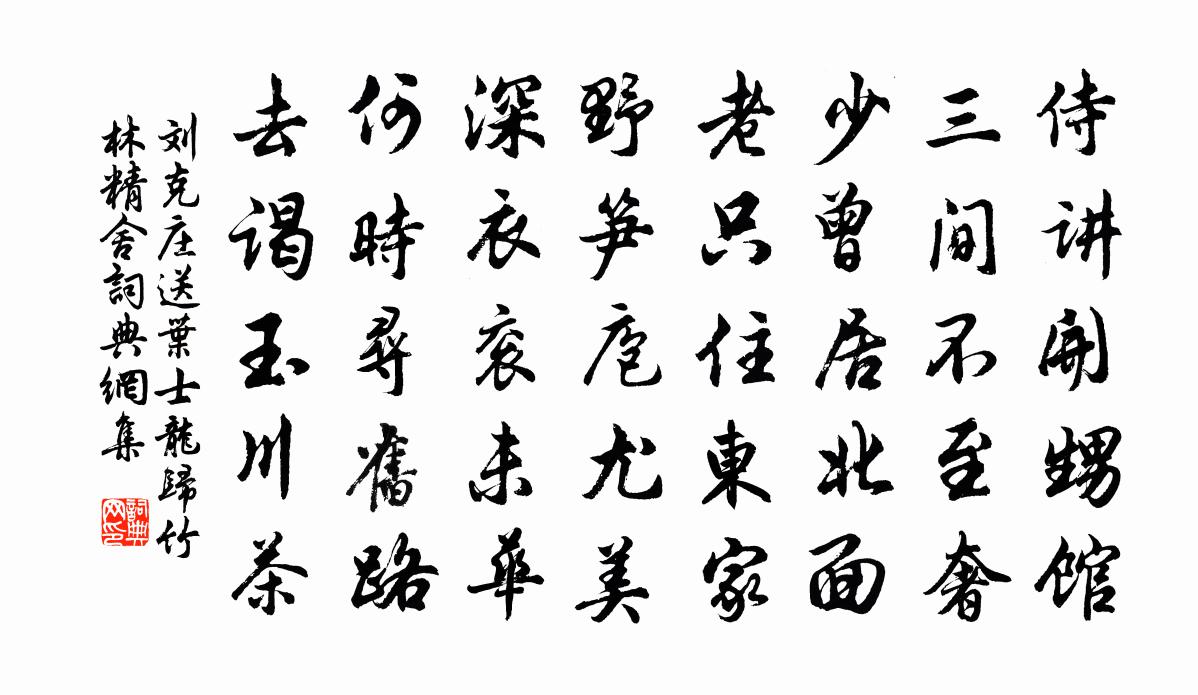 侍讲開甥馆
三间不至奢
少曾居北面
老只住東家
野笋庖尤美
深衣衮未華
何時尋舊路
去谒玉川茶
刘克庄送葉士龍歸竹
林精舍詞典網集
詞典网印